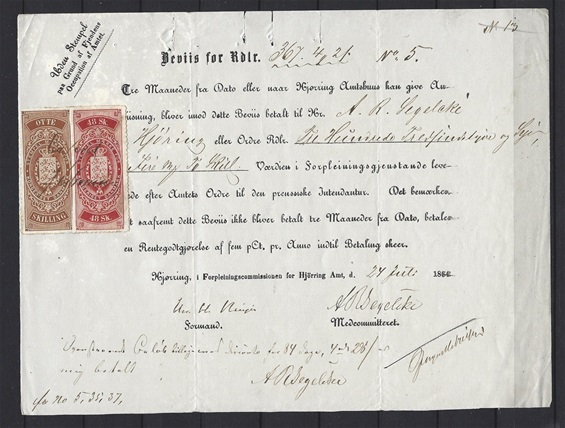 Uden Stempel
paa Grund af Fjendens
Occupation af Amtet.
No 13
Beviis for Rdlr. 367. 4. 2 ſ. No. 5.
Tre Maaneder fra Dato eller naar Hjørring Amtshuus kan give An-
iisning, bliver imod dette Beviis betalt til Hr. A. R. Segelcke
Hjöring eller Ordre Rdlr. Tre Hundrede Tredsindstyve og Syv,
Fire og To Skil. Værdien i Forpleiningsgjenstande leve-
rede efter Amtets Ordre til den preussiske Intendantur. Det bemærkes,
t saafremt dette Beviis ikke bliver betalt tre Maaneder fra Dato, betales
en Rentegodtgjørelse af fem pCt. pr. Anno indtil Betaling skeer.
Hjørring, i Forpleiningscommissionen for Hjørring Amt, d. 24 Juli 186
Formand.
Medcommitteret.
ARSegelcke
OTTE
SKILLING
48 Sk.
48 Sk.
84 Dage, 4
mig betalt
ARSegelcke
No 5, 35, 37,